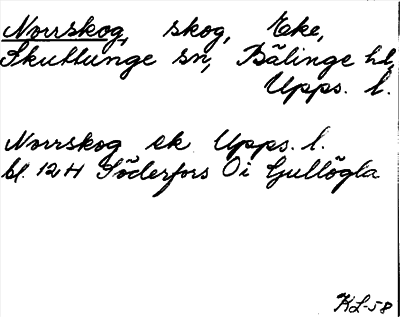 Norrskog, skog, Eke,
Skuttunge sn, Bälinge hd,
Upps. l.
Norrskog ek Upps. l.
bl. 12 H Söderfors Öi Gullögla
KL-58